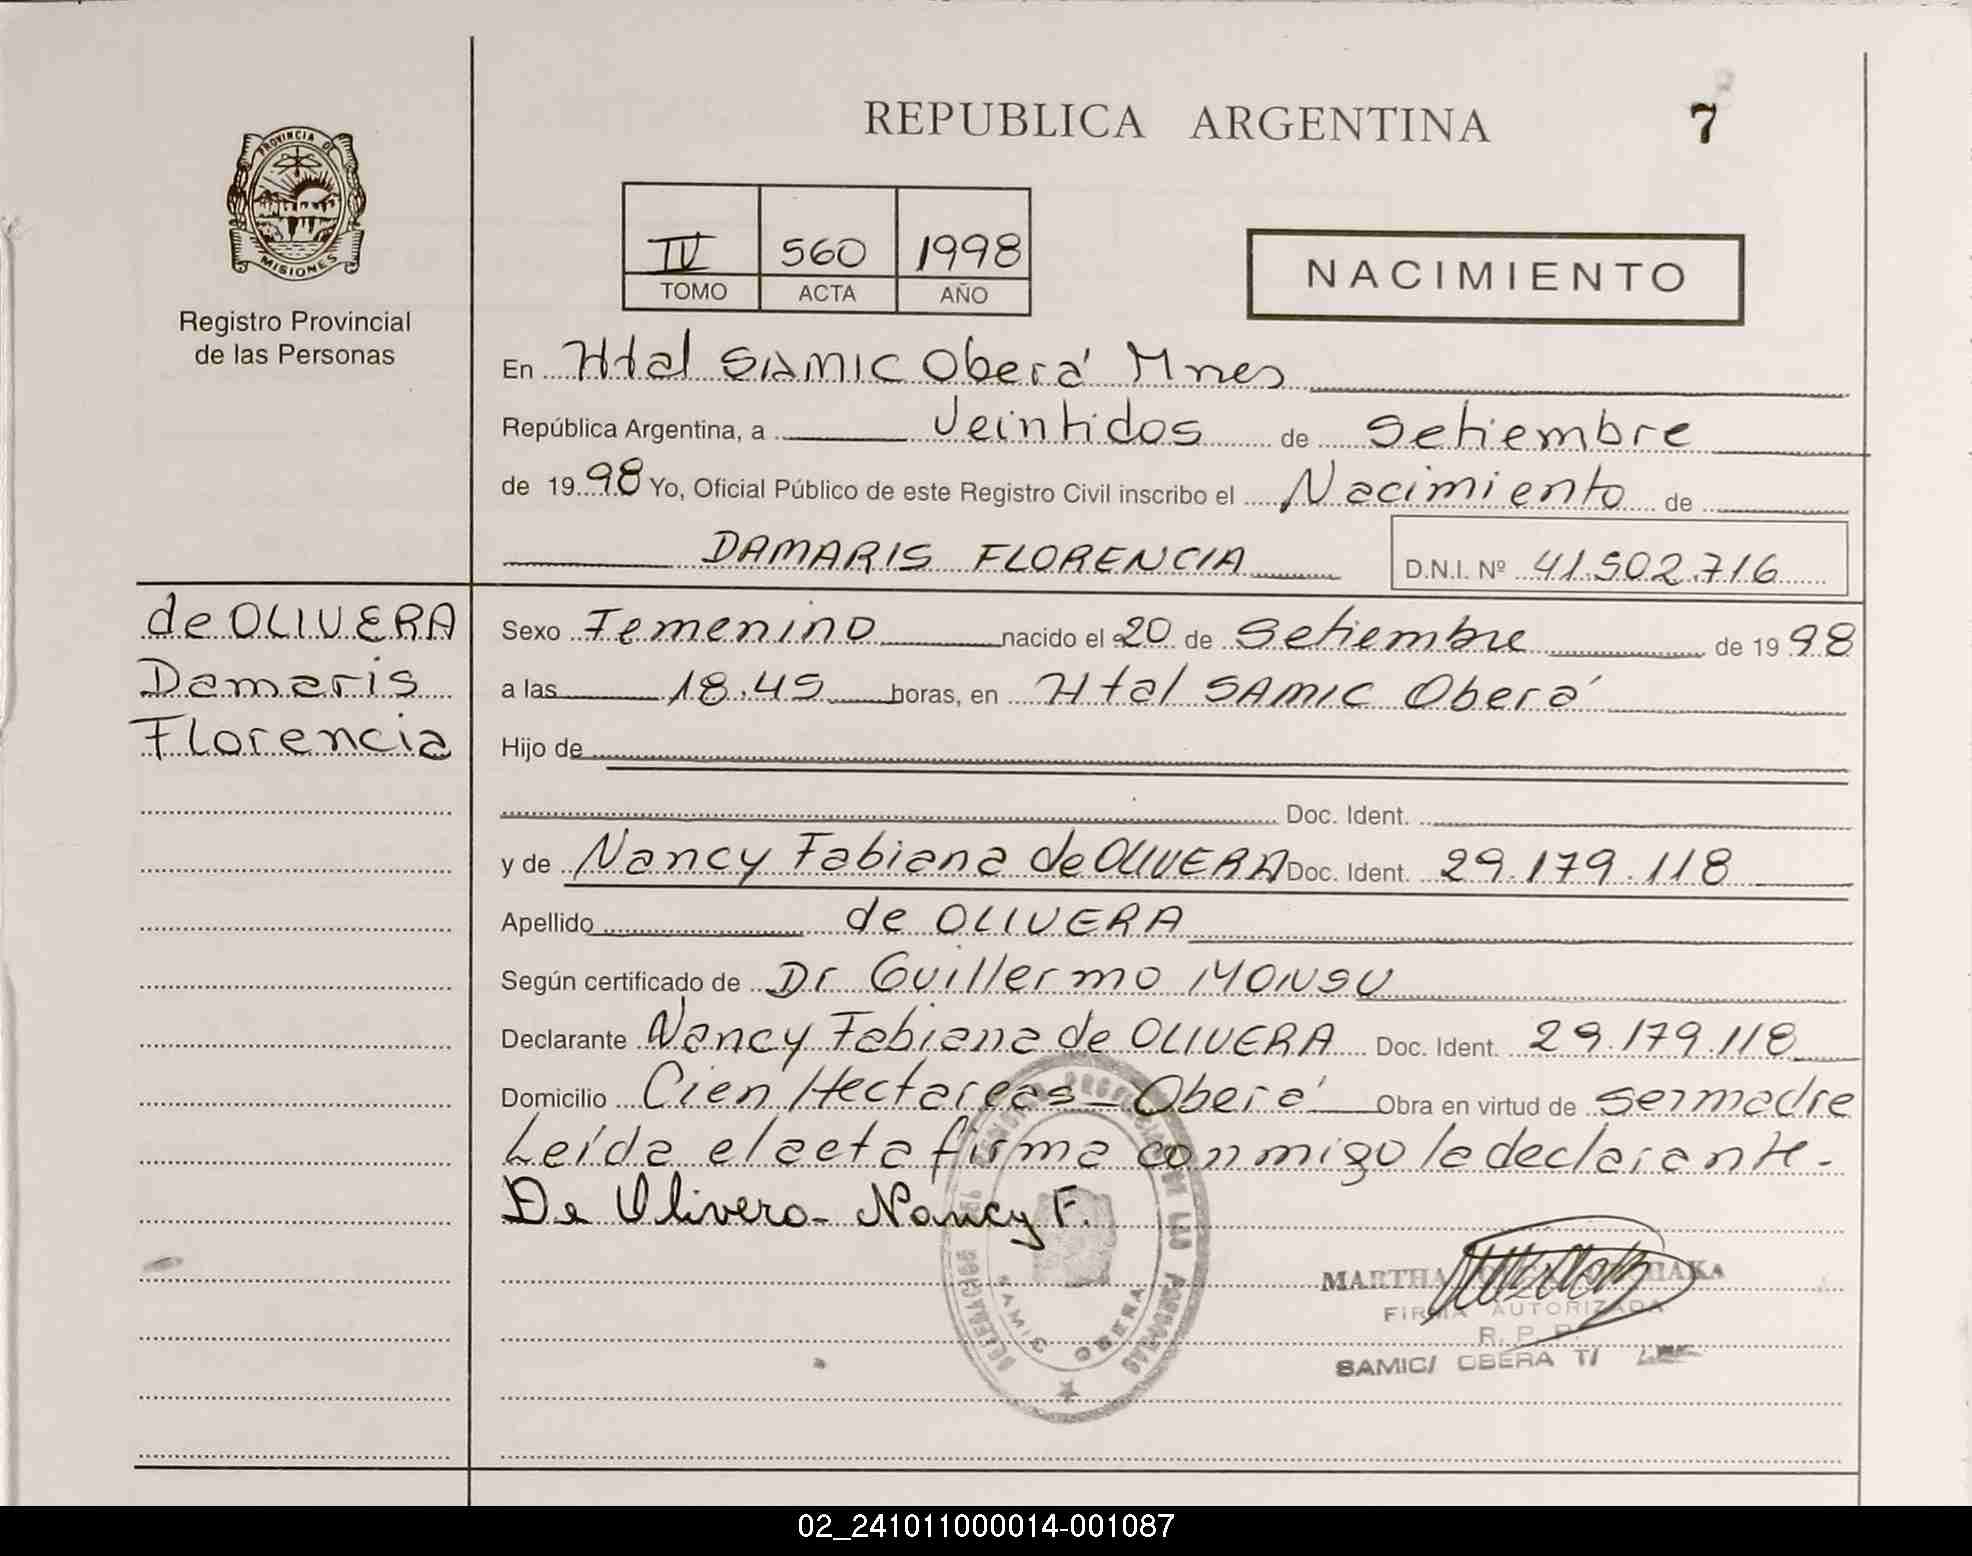 REPUBLICA ARGENTINA
7
PROVINCIA DE
MISIONES
Registro Provincial
de las Personas
IV 560 1998
TOMO ACTA AÑO
NACIMIENTO
En Htal SAMIC Oberá Mnes
República Argentina, a Veintidos de Setiembre
de 1998 Yo, Oficial Público de este Registro Civil inscribo el Nacimiento de
DAMARIS FLORENCIA D.N.I. Nº 41.502.716
de OLIVERA
Damaris
Florencia
Sexo Femenino nacido el 20 de Setiembre de 1998
a las 18.45 horas, en Htal SAMIC Oberá
Hijo de
Doc. Ident.
y de Nancy Fabiana de OLIVERA Doc. Ident. 29.179.118
Apellido de OLIVERA
Según certificado de Dr Guillermo MONSU
Declarante Nancy Fabiana de OLIVERA Doc. Ident. 29.179.118
Domicilio Cien Hectareas - Oberá Obra en virtud de ser madre
Leída el acta firma conmigo la declarante.
De Olivera - Nancy F.
MARTHA
FIRMA AUTORIZADA
R. P. P.
SAMIC/ OBERA
SAMIC OBERA
02_241011000014-001087